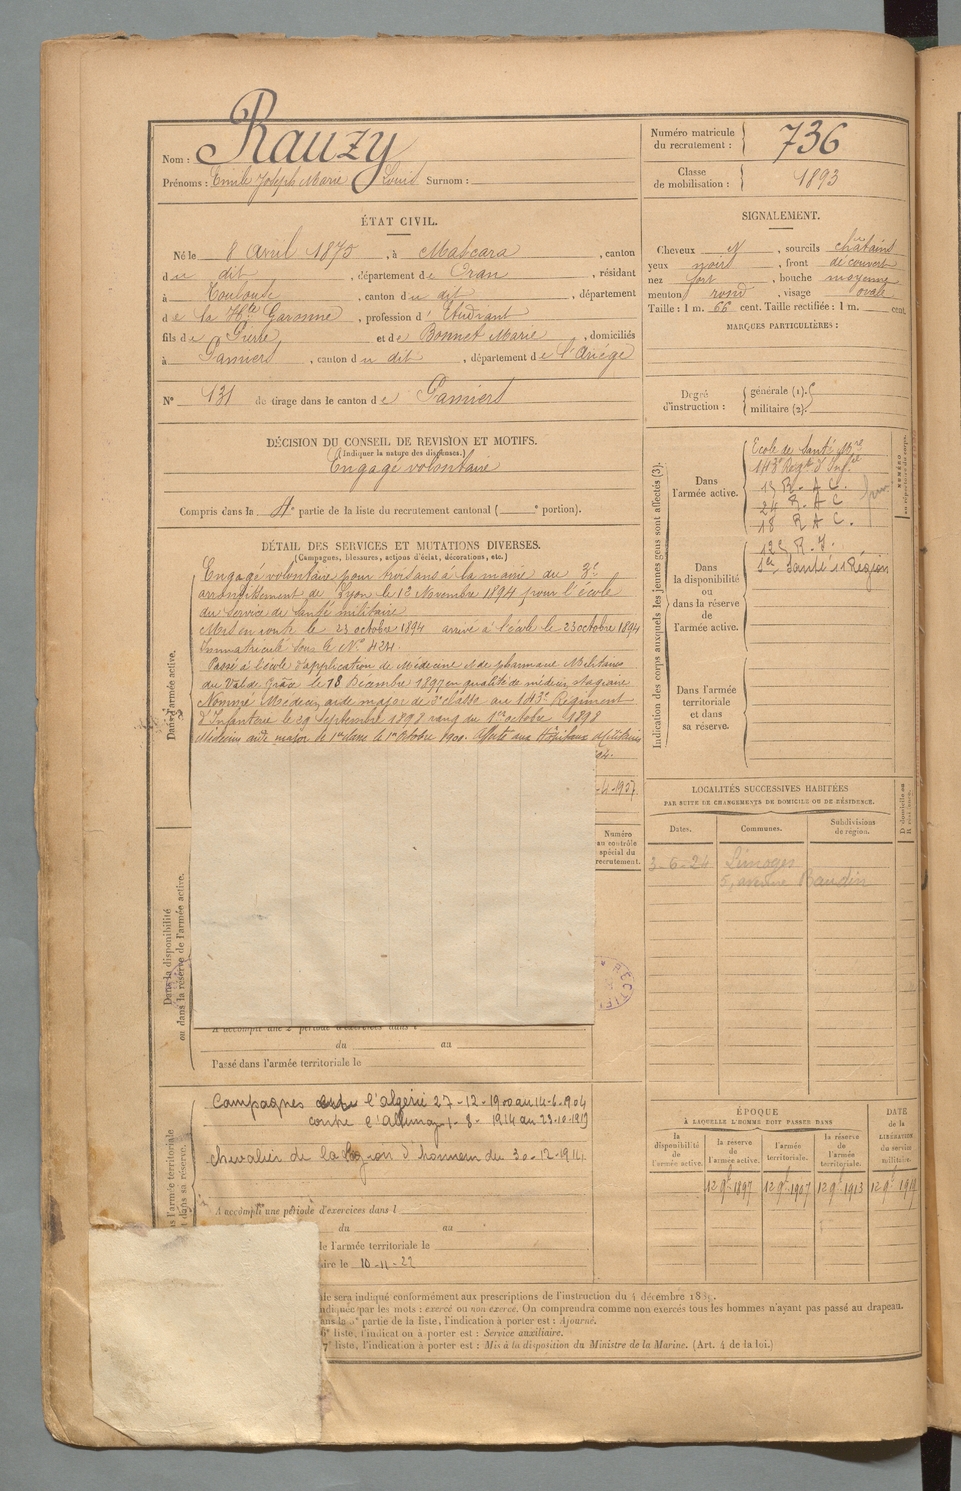 Nom : Rauzy
Prénoms : Emile Joseph Marie Louis Surnom :
Numéro matricule
du recrutement : 736
Classe
de mobilisation : 1893
ÉTAT CIVIL.
Né le 8 Avril 1873, à Mascara, canton
du dit, département de Oran, résidant
à Toulouse, canton du dit, département
de la Hte Garonne, profession d' Etudiant
fils de Pierre et de Bonnet Marie, domiciliés
à Pamiers, canton du dit, département de l'Ariège
N° 131 de tirage dans le canton de Pamiers
SIGNALEMENT.
Cheveux N, sourcils châtains
yeux noirs, front découvert
nez fort, bouche moyenne
menton rond, visage ovale
Taille : 1 m. 66 cent. Taille rectifiée : 1 m. cent.
MARQUES PARTICULIÈRES :
Degré
d'instruction :
générale (1).
militaire (2).
DÉCISION DU CONSEIL DE REVISION ET MOTIFS.
(Indiquer la nature des dispenses.)
Engagé volontaire
Compris dans la 4e partie de la liste du recrutement cantonal ( e portion).
DÉTAIL DES SERVICES ET MUTATIONS DIVERSES.
(Campagnes, blessures, actions d'éclat, décorations, etc.)
Dans l'armée active.
Engagé volontaire pour trois ans à la mairie du 3e
arrondissement de Lyon le 12 Novembre 1894 pour l'école
du service de santé militaire
Mis en route le 23 octobre 1894 arrivé à l'école le 23 octobre 1894
Immatriculé sous le No 424
Passé à l'école d'application de Médecine et de pharmacie Militaires
du Val de Grâce le 18 Décembre 1897 en qualité de médecin stagiaire
Nommé Médecin aide major de 2e classe au 143e Régiment
d'Infanterie le 29 Septembre 1898 rang du 1er octobre 1898
Médecin aide major de 1re classe le 1er Octobre 1900. Affecté aux Hôpitaux Militaires
-4-1927
Numéro
au contrôle
spécial du
recrutement.
Dans la disponibilité
ou dans la réserve de l'armée active.
A accompli une 2e période d'exercices dans l
du au
Passé dans l'armée territoriale le
Campagnes l'algérie 27-12-1900 au 14-6-904
contre l'Allemag 1-8-1914 au 23-10-1919
chevalier de la légion d'honneur du 30-12-1914
A accompli une période d'exercices dans l
du au
de l'armée territoriale le
aire le 10-11-22
l'armée territoriale
dans sa réserve.
Indication des corps auxquels les jeunes gens sont affectés (3).
Dans
l'armée active.
Ecole de Santé Mre
143e Regt d'Inf.ie
13 R. A. C.
24 R. A. C
18 R A C.
Dans
la disponibilité
ou
dans la réserve
de
l'armée active.
12e R. I.
Son Santé 11 Région
Dans l'armée
territoriale
et dans
sa réserve.
NUMÉRO
au répertoire du corps.
LOCALITÉS SUCCESSIVES HABITÉES
PAR SUITE DE CHANGEMENTS DE DOMICILE OU DE RÉSIDENCE.
Dates. Communes. Subdivisions
de région.
D. domicile ou
R. résidence.
3-6-24 Limoges
5, avenue Baudin
ÉPOQUE
À LAQUELLE L'HOMME DOIT PASSER DANS
la
disponibilité
de
l'armée active.
la réserve
de
l'armée active.
l'armée
territoriale.
la réserve
de
l'armée
territoriale.
DATE
de la
LIBÉRATION
du service
militaire.
12 9bre 1897 12 9bre 1907 12 9bre 1913 12 9bre 1919
lle sera indiqué conformément aux prescriptions de l'instruction du 4 décembre 1889.
indiquée par les mots : exercé ou non exercé. On comprendra comme non exercés tous les hommes n'ayant pas passé au drapeau.
ans la 5e partie de la liste, l'indication à porter est : Ajourné.
6e liste, l'indication à porter est : Service auxiliaire.
7e liste, l'indication à porter est : Mis à la disposition du Ministre de la Marine. (Art. 4 de la loi.)